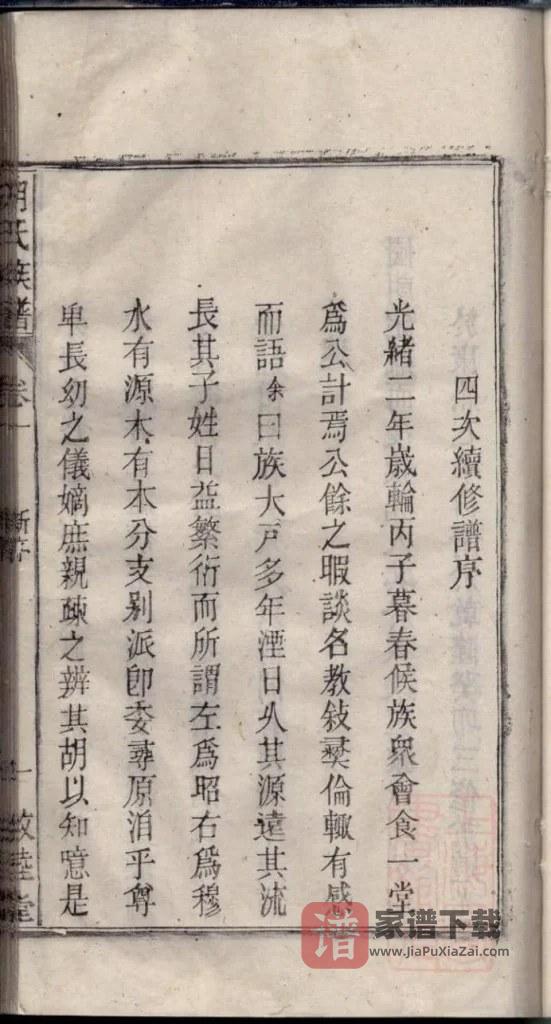 四次續修譜序
光緒二年歲輪丙子暮春候族衆會食一堂
爲公計焉公餘之暇談名教敍彛倫輙有感
而語余曰族大戸多年湮日乆其源遠其流
長其子姓日益繁衍而所謂左爲昭右爲穆
水有源木有本分支别派卽委尋原洎乎尊
卑長幼之儀嫡庶親疎之辨其胡以知噫是
胡氏族譜
卷一
新序
一
敦睦堂
譜
家谱下载
www.JiaPuXiaZai.com